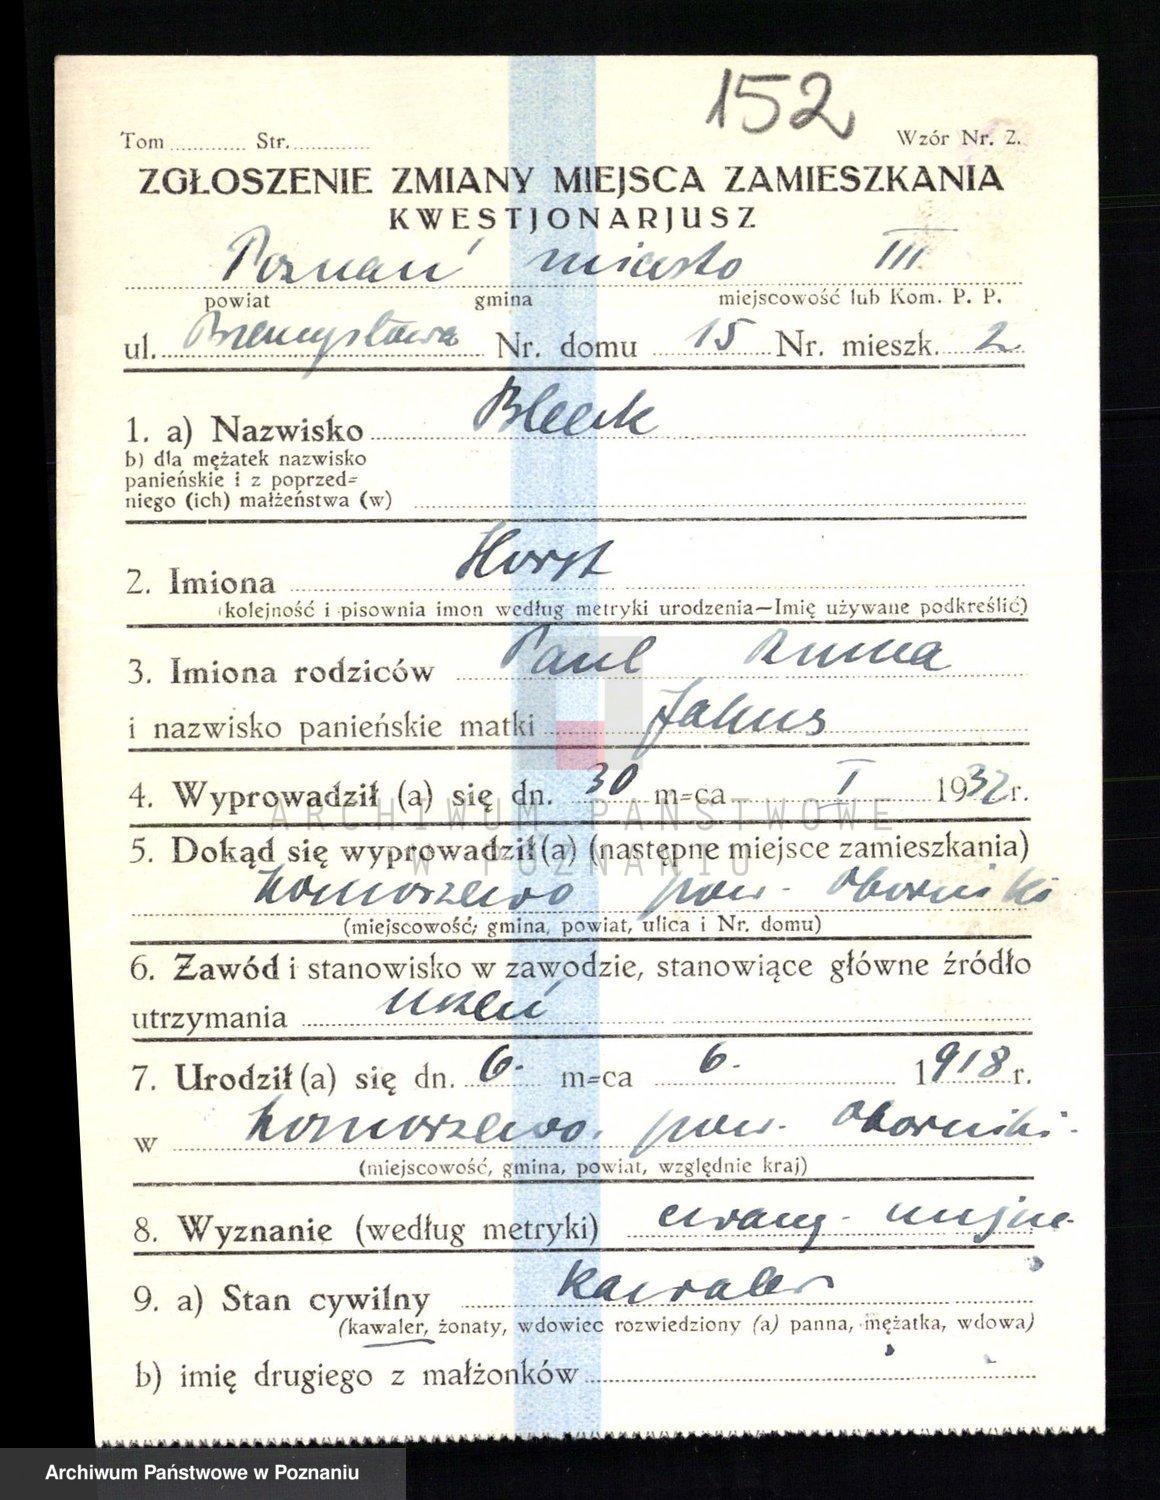 152
Tom ............ Str. ............ Wzór Nr. 2.
ZGŁOSZENIE ZMIANY MIEJSCA ZAMIESZKANIA
KWESTJONARJUSZ
Poznań miasto III
powiat gmina miejscowość lub Kom. P. P.
ul. Przemysława Nr. domu 15 Nr. mieszk. 2
1. a) Nazwisko Bleek
b) dla mężatek nazwisko
panieńskie i z poprzed=
niego (ich) małżeństwa (w)
2. Imiona Horst
(kolejność i pisownia imon według metryki urodzenia—Imię używane podkreślić)
3. Imiona rodziców Paul
i nazwisko panieńskie matki
4. Wyprowadził (a) się dn. 30 m=ca I 1932 r.
ARCHIWUM PAŃSTWOWE
W POZNANIU
5. Dokąd się wyprowadził (a) (następne miejsce zamieszkania)
Komorzewo pow. Oborniki
(miejscowość, gmina, powiat, ulica i Nr. domu)
6. Zawód i stanowisko w zawodzie, stanowiące główne źródło
utrzymania uczeń
7. Urodził (a) się dn. 6. m=ca 6. 1918 r.
w Komorzewo. pow. Oborniki.
(miejscowość, gmina, powiat, względnie kraj)
8. Wyznanie (według metryki) ewang. unijne.
9. a) Stan cywilny Kawaler
(kawaler, żonaty, wdowiec rozwiedziony (a) panna, mężatka, wdowa)
b) imię drugiego z małżonków
Archiwum Państwowe w Poznaniu